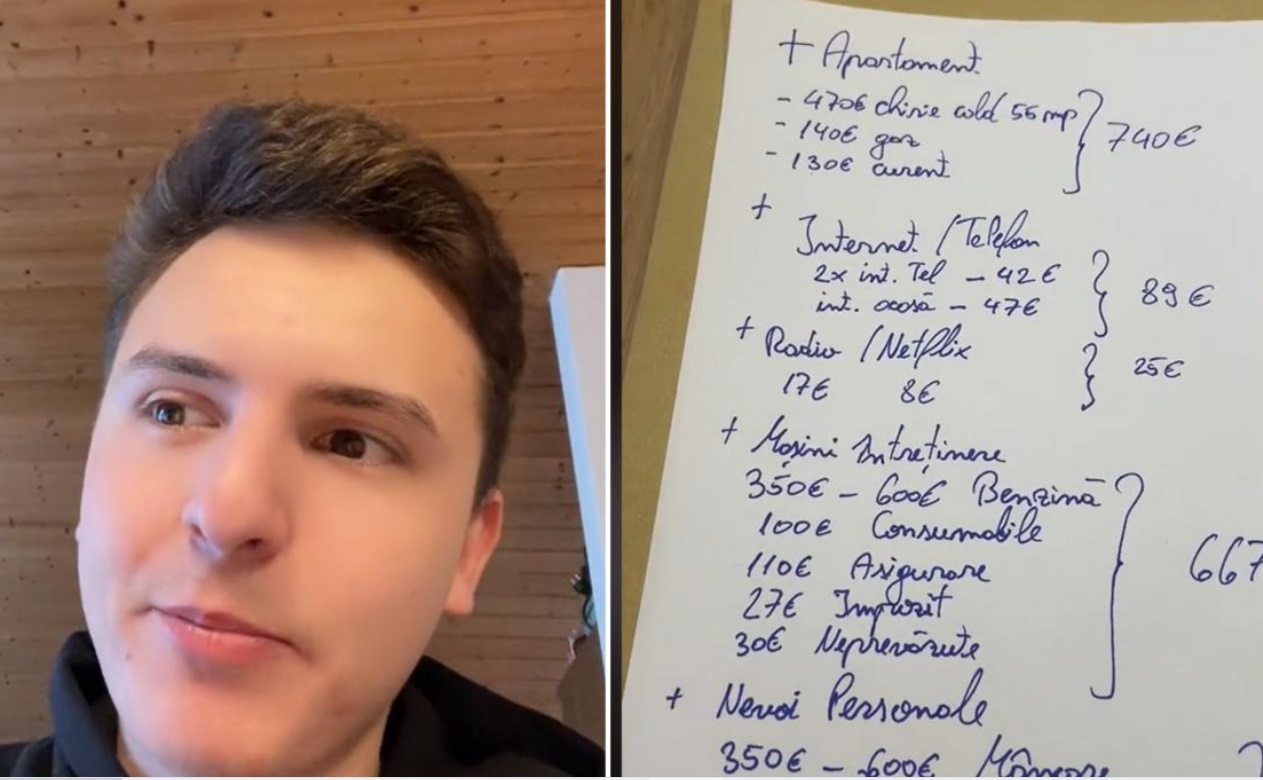 + Apartament
- 470€ chirie cold 55 mp
- 140€ gaz
- 130€ curent
740€
+
Internet / Telefon
2x int. Tel - 42€
int. acasă - 47€
89€
+ Radio / Netflix
17€ 8€
25€
+ Mașini Întreținere
350€ - 600€ Benzină
100€ Consumabile
110€ Asigurare
27€ Impozit
30€ Neprevăzute
667
+ Nevoi Personale
350€ - 600€ Mâncare